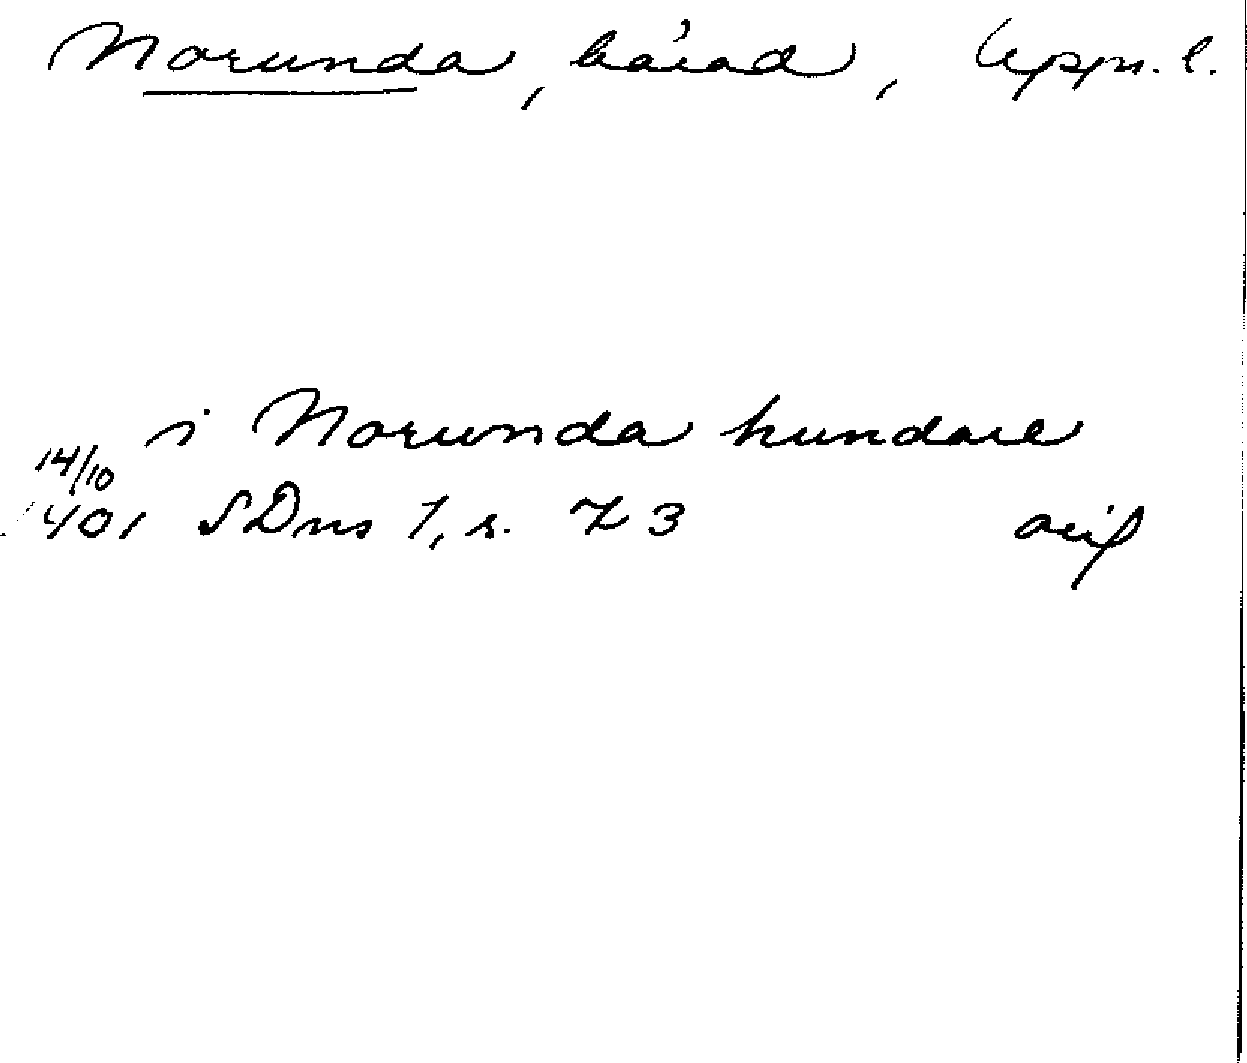 Norunda, härad, Upps. l.
i Norunda hundare
14/10
1401 SDns 1, s. 73
avs